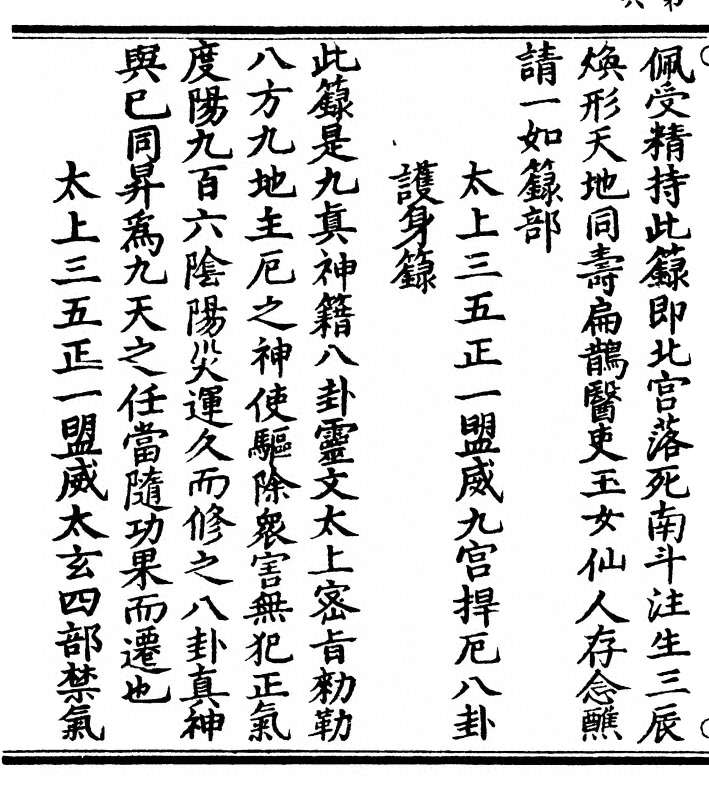 佩受精持此籙即北宫落死南斗注生三辰
煥形天地同壽扁鵲醫吏玉女仙人存念醮
請一如籙部
太上三五正一盟威九宫捍厄八卦
護身籙
此籙是九真神籍八卦靈文太上宻旨勑勒
八方九地主厄之神使驅除衆害無犯正氣
度陽九百六陰陽災運久而修之八卦真神
與巳同昇為九天之任當隨功果而遷也
太上三五正一盟威太玄四部禁氣